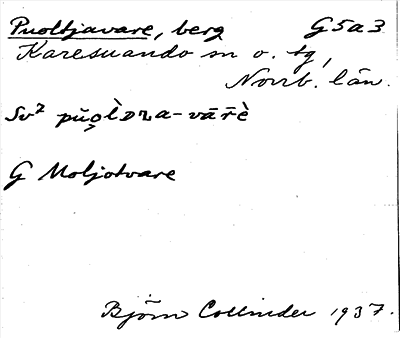 Puoltjavare, berg G5a3
Karesuando sn o. tg,
Norrb. län.
Sv²
G Moljotvare
Björn Collinder 1937.